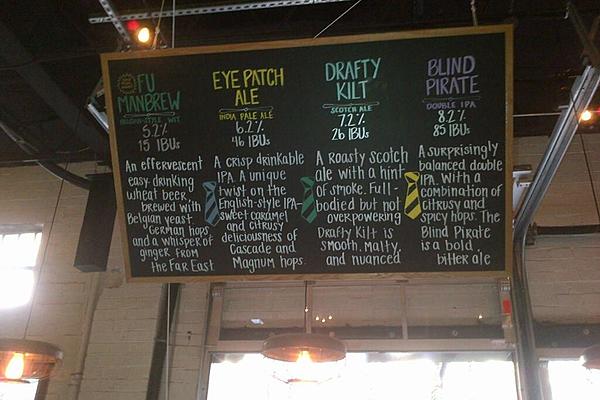 FU
MANBREW
BELGIAN-STYLE WIT
5.2%
15 IBUs
An effervescent
easy-drinking
wheat beer,
brewed with
Belgian yeast,
German hops
and a whisper of
ginger from
the Far East
EYE PATCH
ALE
INDIA PALE ALE
6.2%
46 IBUs
A crisp drinkable
IPA. A unique
twist on the
English-style IPA-
sweet caramel
and citrusy
deliciousness of
Cascade and
Magnum hops.
DRAFTY
KILT
SCOTCH ALE
7.2%
26 IBUs
A roasty scotch
ale with a hint
of smoke. Full-
bodied but not
overpowering
Drafty Kilt is
smooth, malty,
and nuanced
BLIND
PIRATE
DOUBLE IPA
8.2%
85 IBUs
A surprisingly
balanced double
IPA. With a
combination of
citrusy and
spicy hops. The
Blind Pirate
is a bold,
bitter ale